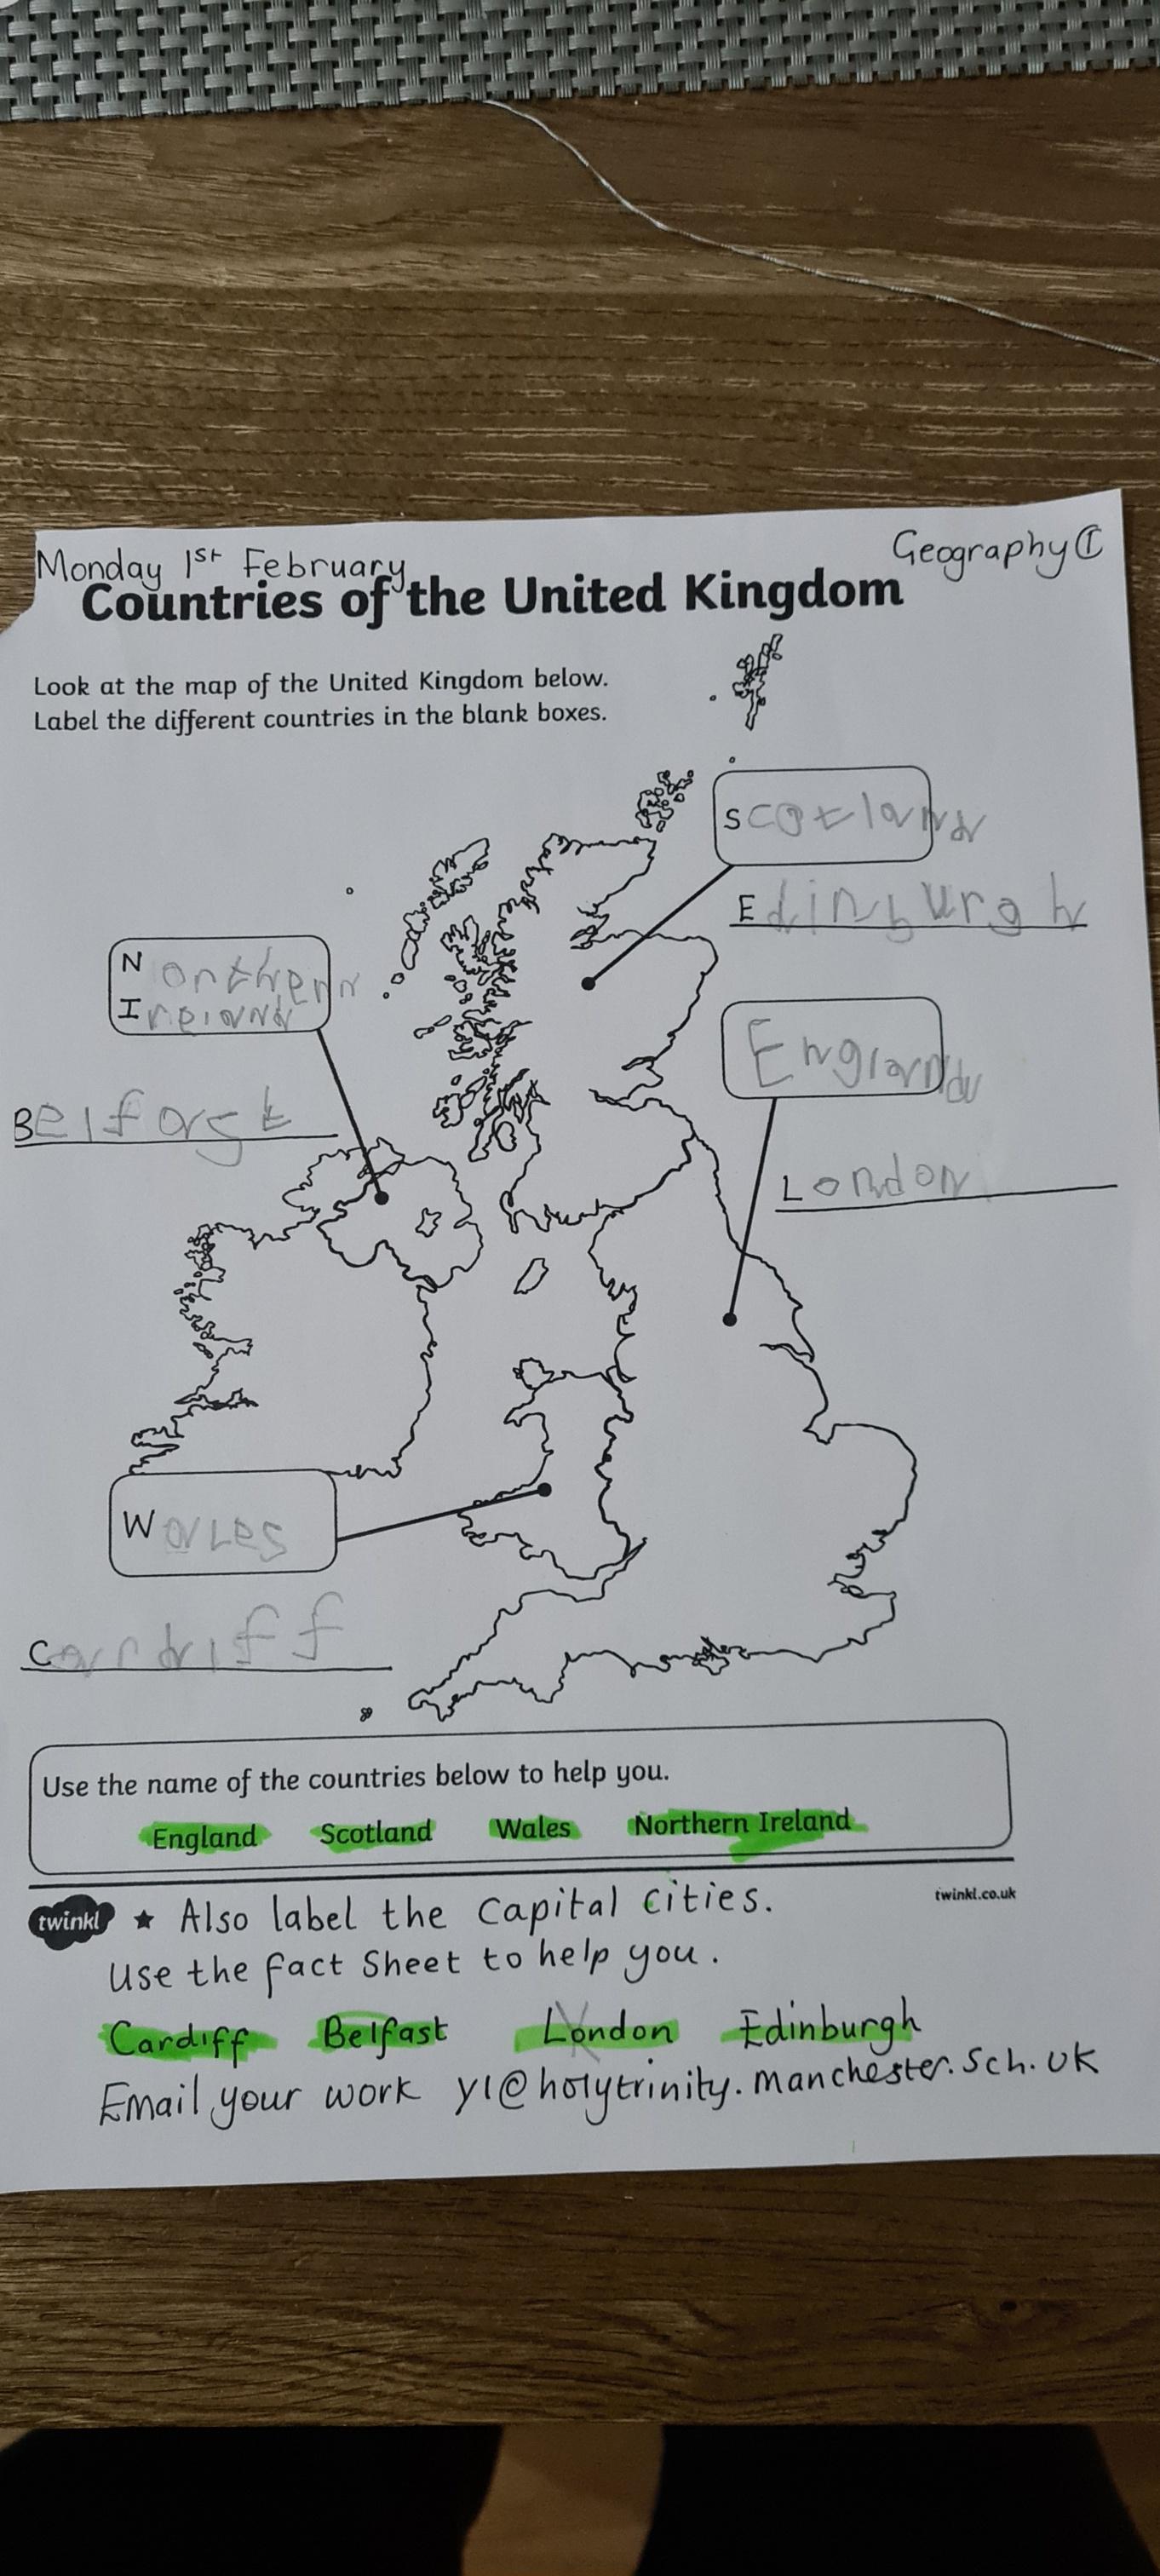 Monday 1st February
Geography ①
Countries of the United Kingdom
Look at the map of the United Kingdom below.
Label the different countries in the blank boxes.
Scotland
Edinburgh
Northern
Ireland
England
Belfast
London
Wales
Cardiff
Use the name of the countries below to help you.
England Scotland Wales Northern Ireland
twinkl
twinkl.co.uk
★ Also label the capital cities.
Use the fact Sheet to help you.
Cardiff Belfast London Edinburgh
Email your work y1@holytrinity.manchester.sch.uk